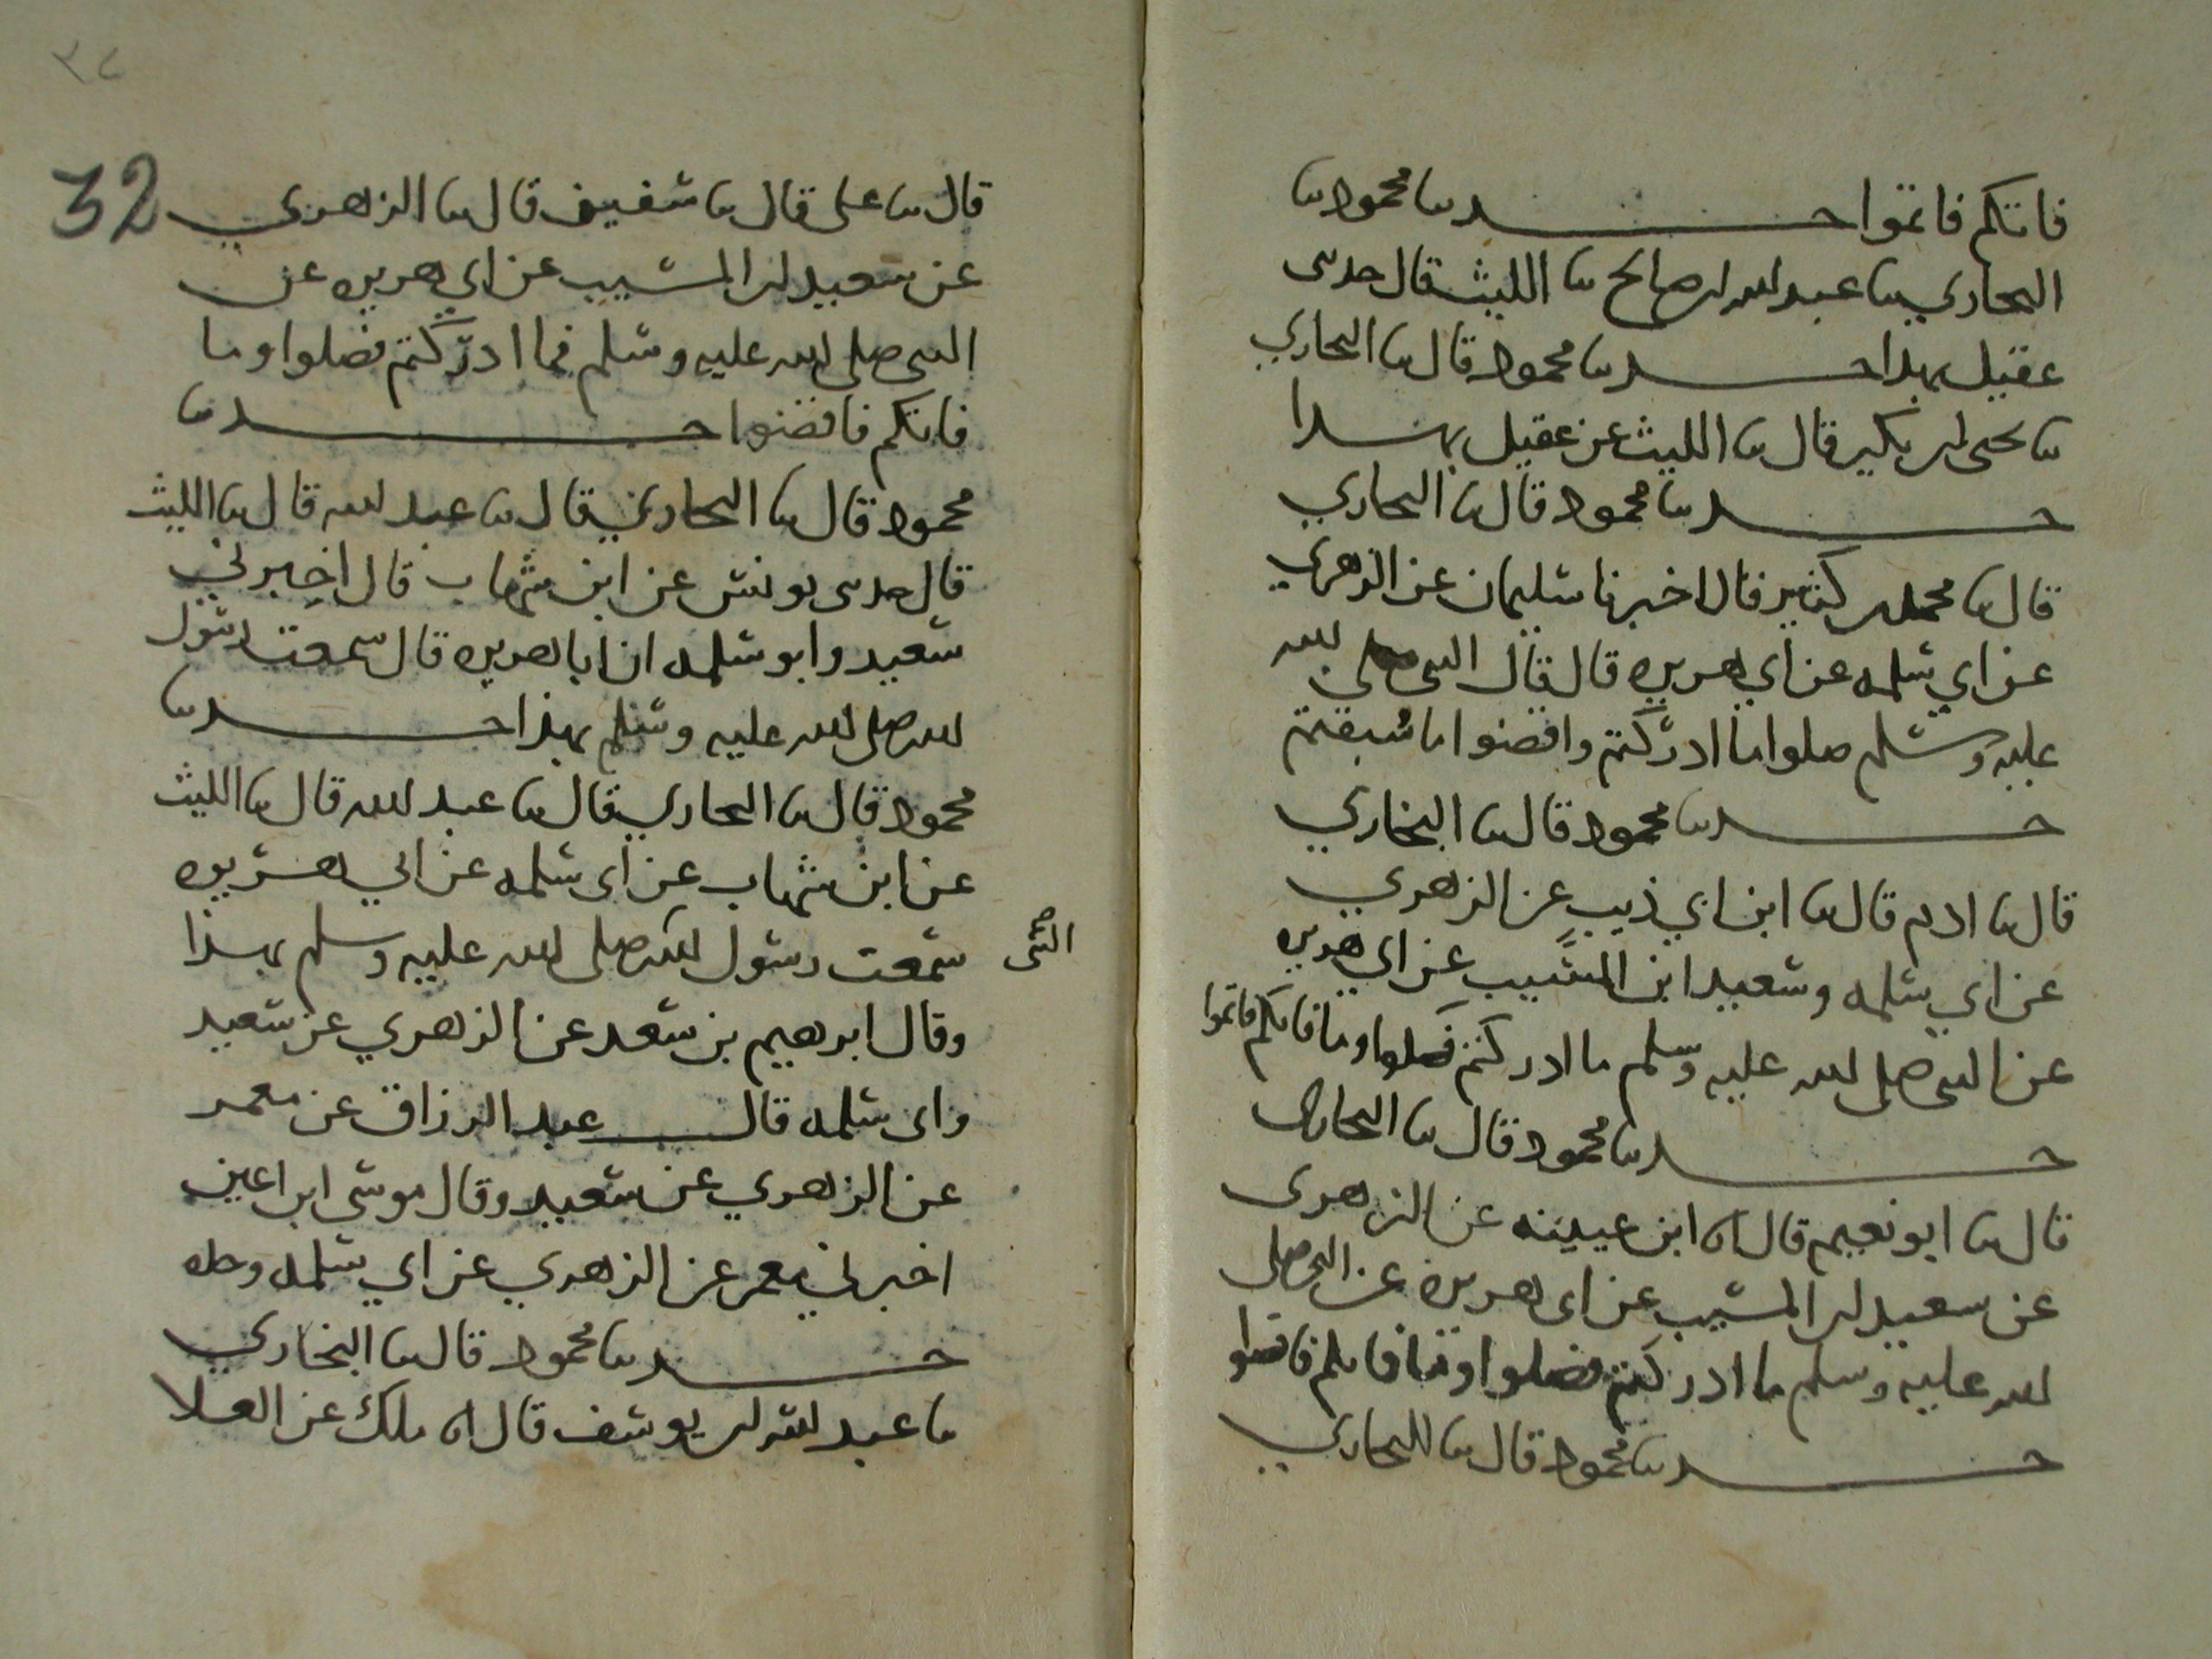 فاتكم فاتموا حدثنا محمود ثنا
البخاري ثنا عبد الله بن صالح ثنا الليث قال حدثني
عقيل بهذا حدثنا محمود قال ثنا البخاري
ثنا يحيى بن بكير قال ثنا الليث عن عقيل بهذا
حدثنا محمود قال ثنا البخاري
قال ثنا محمد بن كثير قال اخبرنا سليمان عن الزهري
عن ابي سلمه عن ابي هريره قال قال النبي صلى الله
عليه وسلم صلوا ما ادركتم واقضوا ما سُبقتم
حدثنا محمود قال ثنا البخاري
قال ثنا ادم قال ثنا ابن ابي ذيب عن الزهري
عن ابي سلمه وسعيد ابن المسَّيب عن ابي هريره
عن النبي صلى الله عليه وسلم ما ادركتم فصلوا وما فاتكم فاتموا
حدثنا محمود قال ثنا البخاري
قال ثنا ابو نعيم قال ثنا ابن عيينه عن الزهرى
عن سعيد بن المسيب عن ابى هريره عن النبي صلى
الله عليه وسلم ما ادركتم فصلوا وما فاتكم فاقضوا
حدثنا محمود قال ثنا البخاري
٣٢
32
قال ثنا على قال ثنا سفين قال ثنا الزهري
عن سعيد بن المسيب عن ابي هريره عن
النبى صلى الله عليه وسلم فما ادركتم فصلوا وما
فاتكم فاقضوا حدثنا
محمود قال ثنا البخاري قال ثنا عبد الله قال ثنا الليث
قال حدثنى يونس عن ابن شهاب قال اخبرني
سعيد وابو سلمه ان ابا هريره قال سمعت رسول
الله صلى الله عليه وسلم بهذا حدثنا
محمود قال ثنا البخاري قال ثنا عبد الله قال ثنا الليث
عن ابن شهاب عن ابى سلمه عن ابي هريره
سمعت رسول الله صلى الله عليه وسلم بهذا
النبى
وقال ابرهيم بن سعد عن الزهري عن سعيد
وابى سلمه قال عبد الرزاق عن معمر
عن الزهري عن سعيد وقال موسى ابن اعين
اخبرني معمر عن الزهري عن ابي سلمه وحده
حدثنا محمود قال ثنا البخاري
ثنا عبد الله بن يوسف قال انا ملك عن العلا